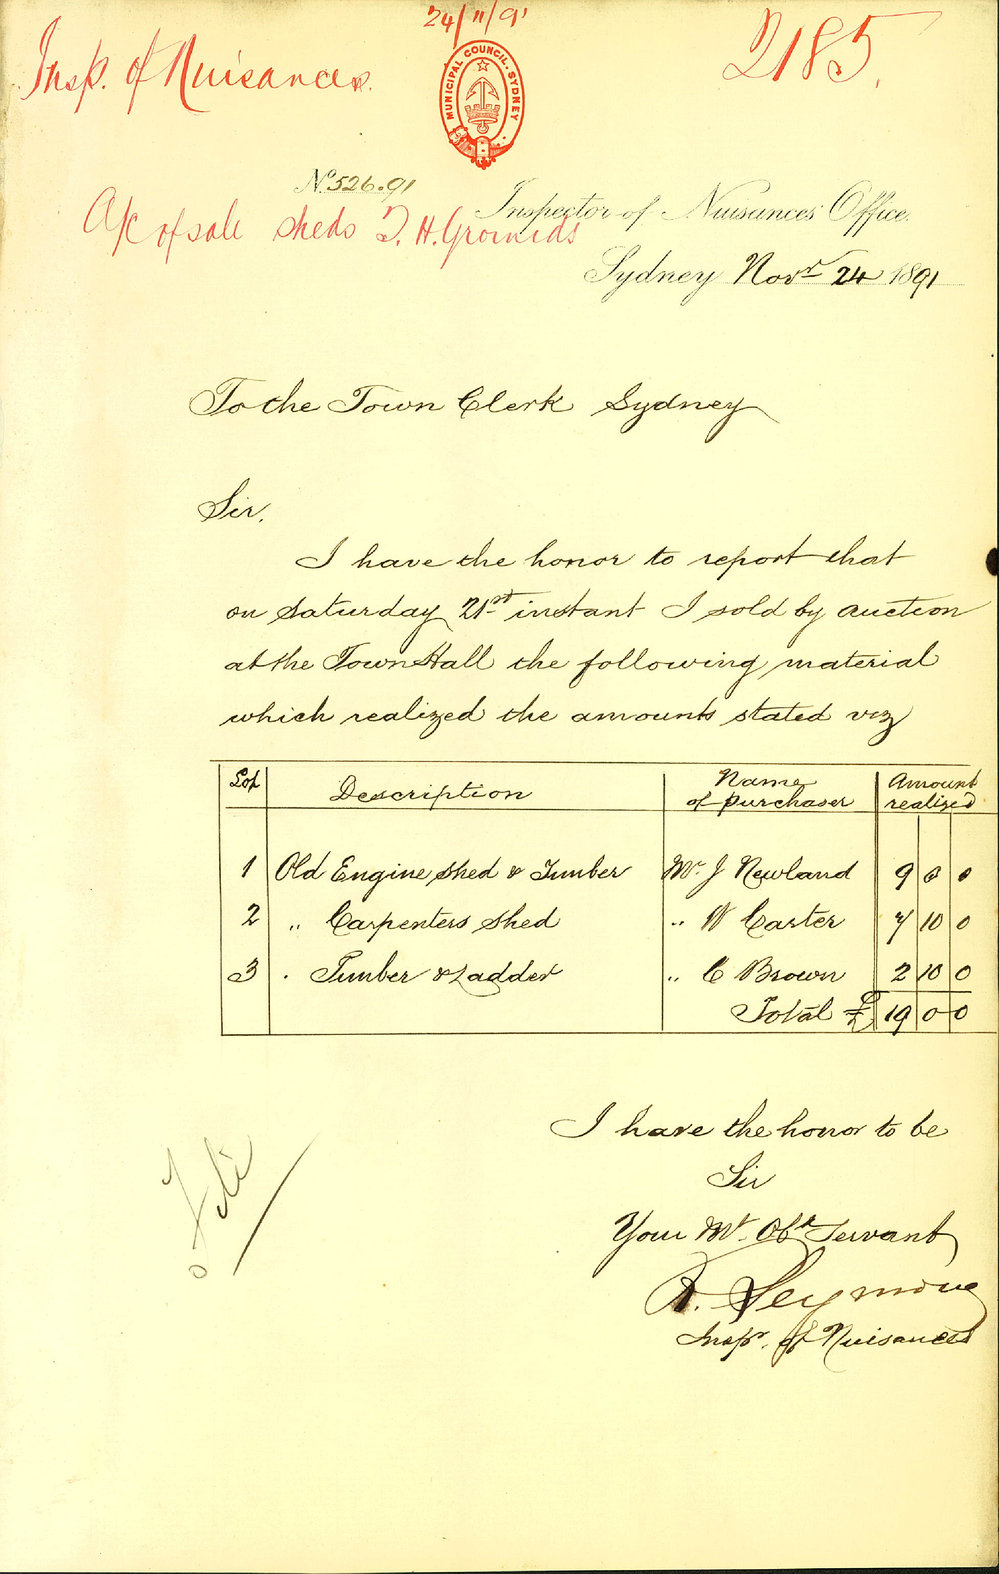 24/11/91
Insp. of Nuisances.
2185.
MUNICIPAL COUNCIL. SYDNEY
No. 526.91
Inspector of Nuisances' Office.
A/c of sale sheds T. H. Grounds
Sydney Novr 24 1891
To the Town Clerk Sydney
Sir,
I have the honor to report that
on Saturday 21st instant I sold by auction
at the Town Hall the following material
which realized the amounts stated viz
Lot Description Name of purchaser Amount realized
1 Old Engine shed & Timber Mr. J Newland 9 0 0
2 " Carpenters Shed " W Carter 7 10 0
3 . Timber & Ladder " C Brown 2 10 0
Total £ 19 0 0
I have the honor to be
Sir
Your Mt. Obt Servant
R. Seymour
Inspr. of Nuisances
File